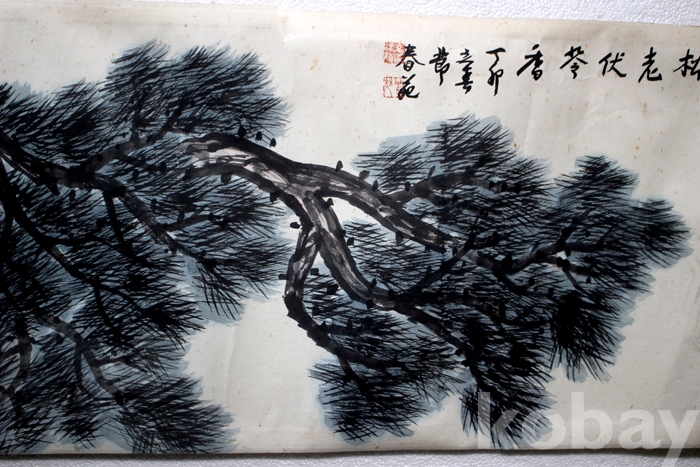 松老伏苓香
丁卯
立春
節
春苑
kobay